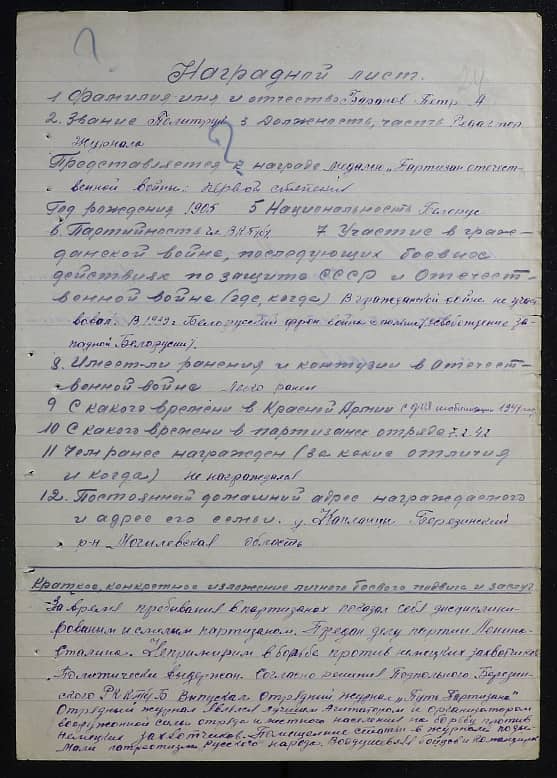 Наградной лист.
1 Фамилия имя и отчество Баранов Петр А
2. Звание Политрук 3 Должность, часть Редактор
Журнала
Представляется к награде медали „Партизан отечест-
венной войны: первой степени
Год рождения 1905 5 Национальность Белорус
6. Партийность чл. ВКП(б) 7 Участие в граж-
данской войне, последующих боевых
действиях по защите СССР и Отечест-
венной войне (где, когда) В гражданской войне не участ
вовал. В 1939 г Белорусский фронт война с освобождение за-
падной Белорусии).
8. Имеет-ли ранения и контузии в Отечест-
венной войне легко ранен
9 С какого времени в Красной Армии с дня мобилизации 1941 год
10 С какого времени в партизанск отряде 7.2.42
11 Чем ранее награжден (за какие отличия
и когда) не награждался
12. Постоянный домашний адрес награждаемого
и адрес его семьи. Капланцы Березинский
р-н Могилевская область
Краткое, конкретное изложение личного боевого подвига и заслуг
За время пребывания в партизанах показал себя дисциплини-
рованным и смелым партизаном. Предан делу партии Ленина-
Сталина. Непримирим в борьбе против немецких захватчиков
Политически выдержан. Согласно решения Подпольного Берези-
нского РК КП(б)Б Выпускал Отрядный журнал „Путь Партизана"
Отрядный журнал явился лучшим Агитатором и организатором
вооруженной силы отряда и местного населения на борьбу против
немецких захватчиков. Помещенные статьи в журнале поды-
мали патриотизм Русского народа. Воодушевляя бойцов и командиров